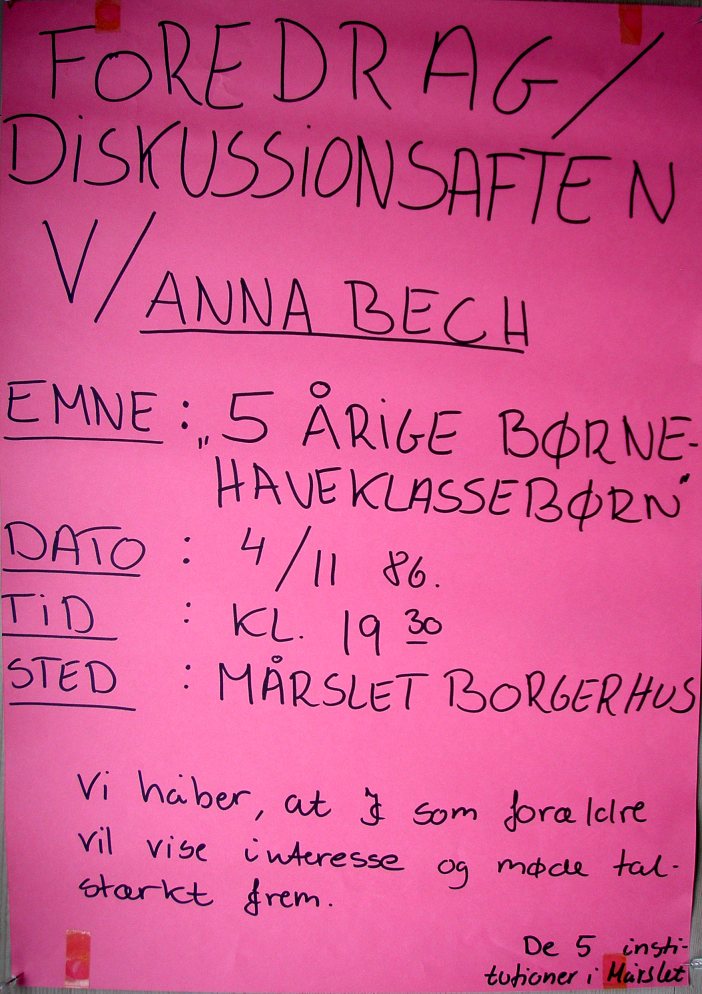 FOREDRAG/
DiSKUSSiONSAFTEN
V/ANNA BECH
EMNE : „5 ÅRiGE BØRNE-
HAVEKLASSEBØRN"
DATO : 4/11 86.
TiD : KL. 19 30
STED : MÅRSLET BORGERHUS
Vi håber, at I som forældre
vil vise interesse og møde tal-
stærkt frem.
De 5 insti-
tutioner i Mårslet